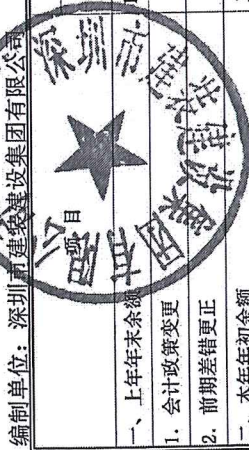 编制单位：深圳市建装建设集团有限公司
项目
一、上年年末余额
1. 会计政策变更
2. 前期差错更正
二、本年年初余额